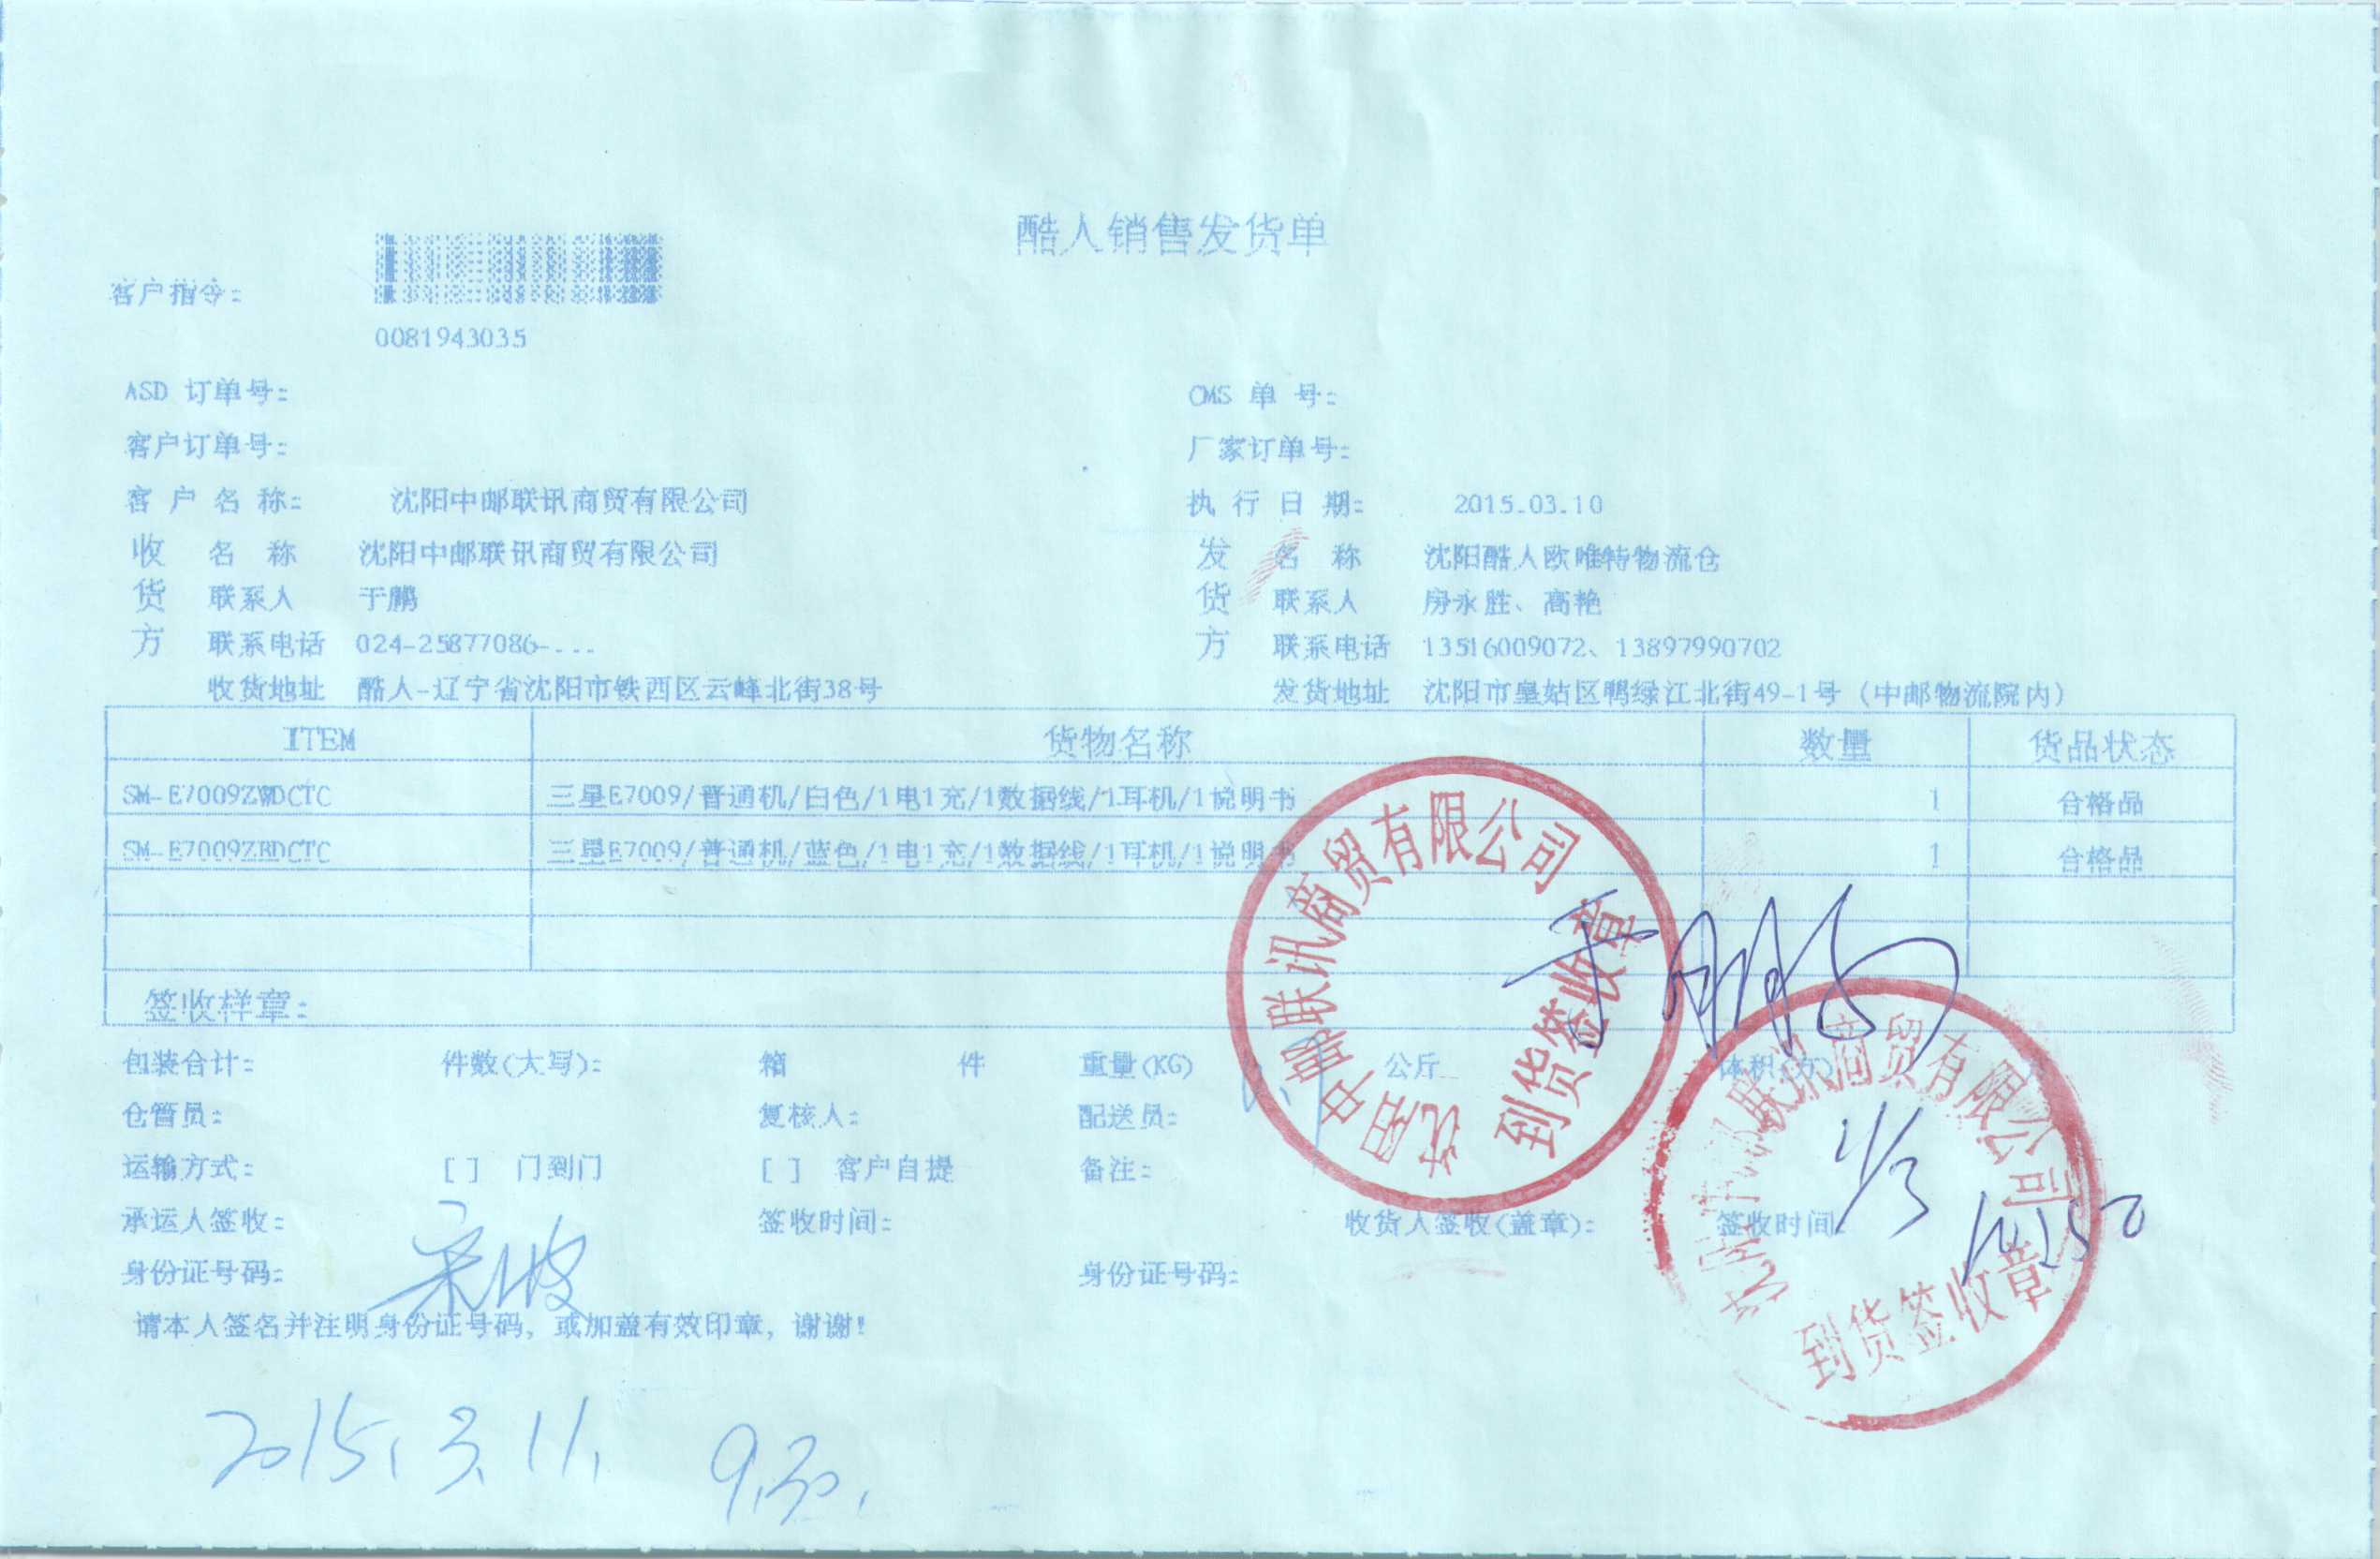 酷人销售发货单
客户指令:
0081943035
ASD 订单号: CMS 单 号:
客户订单号: 厂家订单号:
客 户 名 称: 沈阳中邮联讯商贸有限公司 执 行 日 期: 2015.03.10
收 名 称 沈阳中邮联讯商贸有限公司 发 名 称 沈阳酷人欧唯特物流仓
货 联系人 于鹏 货 联系人 房永胜、高艳
方 联系电话 024-25877086-... 方 联系电话 13516009072、13897990702
收货地址 酷人-辽宁省沈阳市铁西区云峰北街38号 发货地址 沈阳市皇姑区鸭绿江北街49-1号（中邮物流院内）
ITEM 货物名称 数量 货品状态
SM-E7009ZWDCTC 三星E7009/普通机/白色/1电1充/1数据线/1耳机/1说明书 1 合格品
SM-E7009ZBDCTC 三星E7009/普通机/蓝色/1电1充/1数据线/1耳机/1说明书 1 合格品
沈阳中邮联讯商贸有限公司
到货签收章
于鹏
签收样章:
包装合计: 件数(大写): 箱 件 重量(KG) 公斤 体积(方)
仓管员: 复核人: 配送员:
运输方式: [ ] 门到门 [ ] 客户自提 备注:
承运人签收: 签收时间: 收货人签收(盖章): 签收时间:
宋波
11/3
身份证号码: 身份证号码:
沈阳中邮联讯商贸有限公司
到货签收章
请本人签名并注明身份证号码，或加盖有效印章，谢谢!
2015.3.11. 9.30.